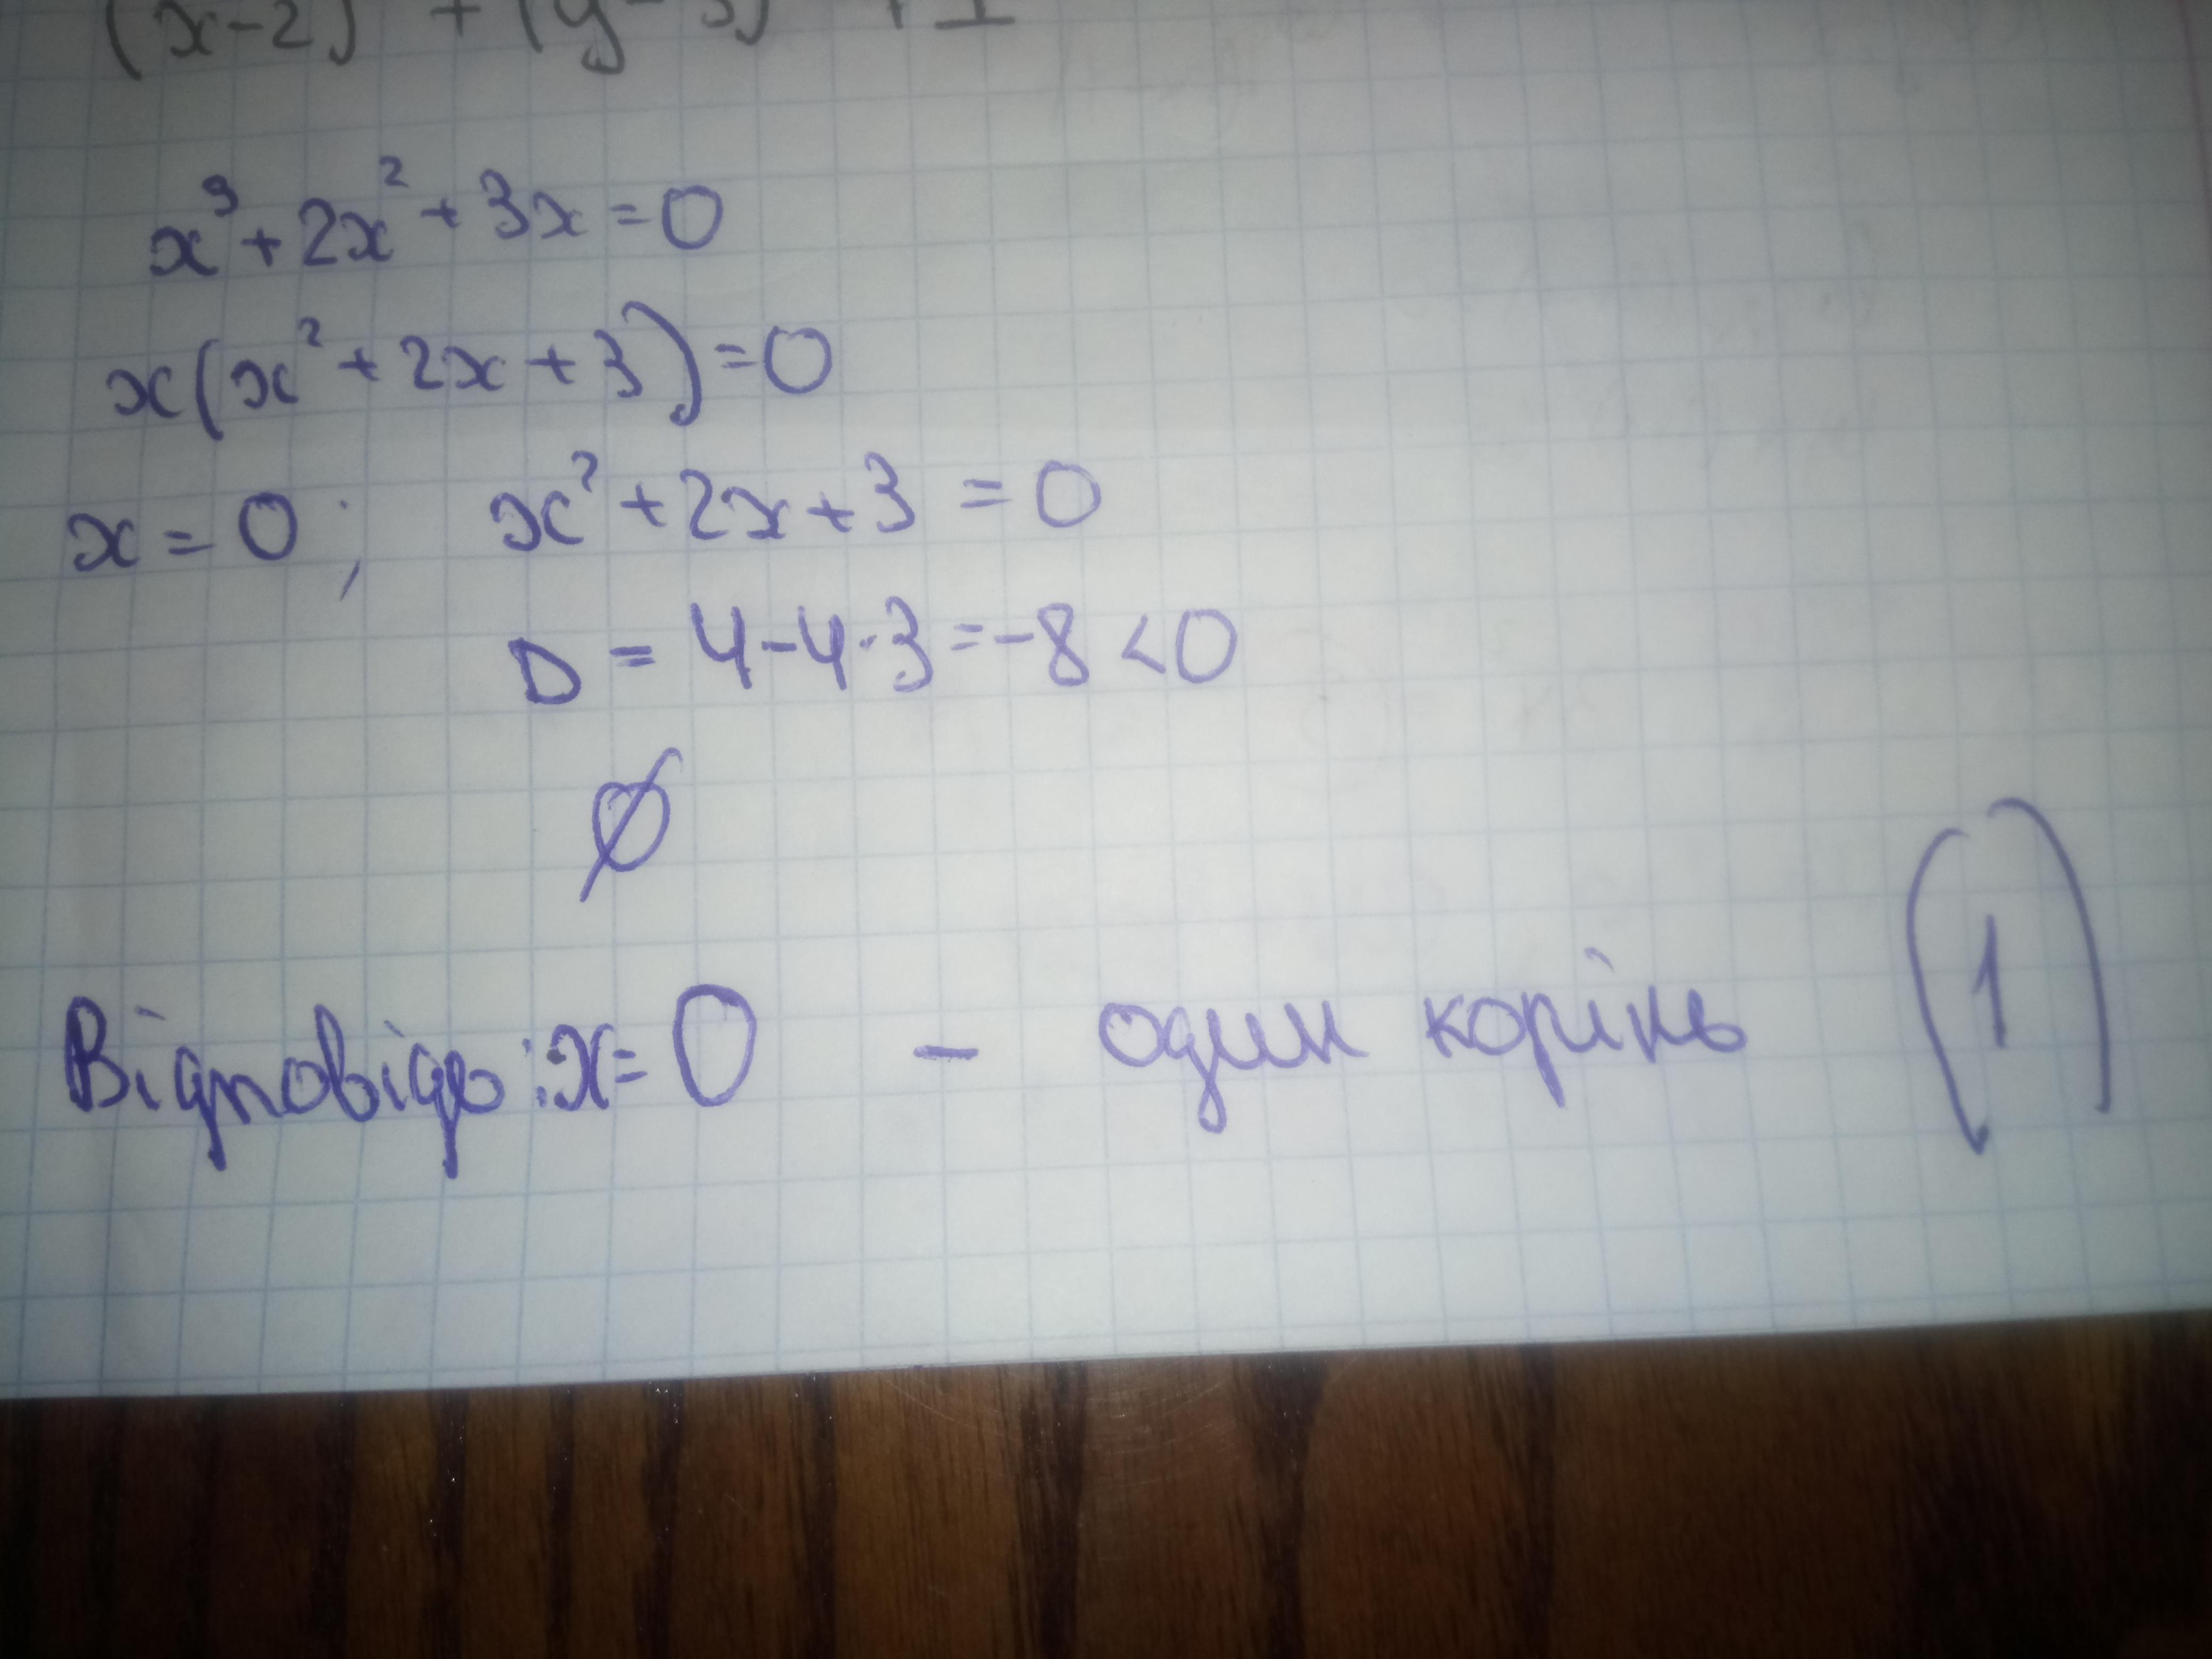 (x-2) + (y-3) + 1
x³+2x²+3x=0
x(x²+2x+3)=0
x=0; x²+2x+3=0
D=4-4·3=-8<0
∅
Відповідь: x=0 - один корінь (1)